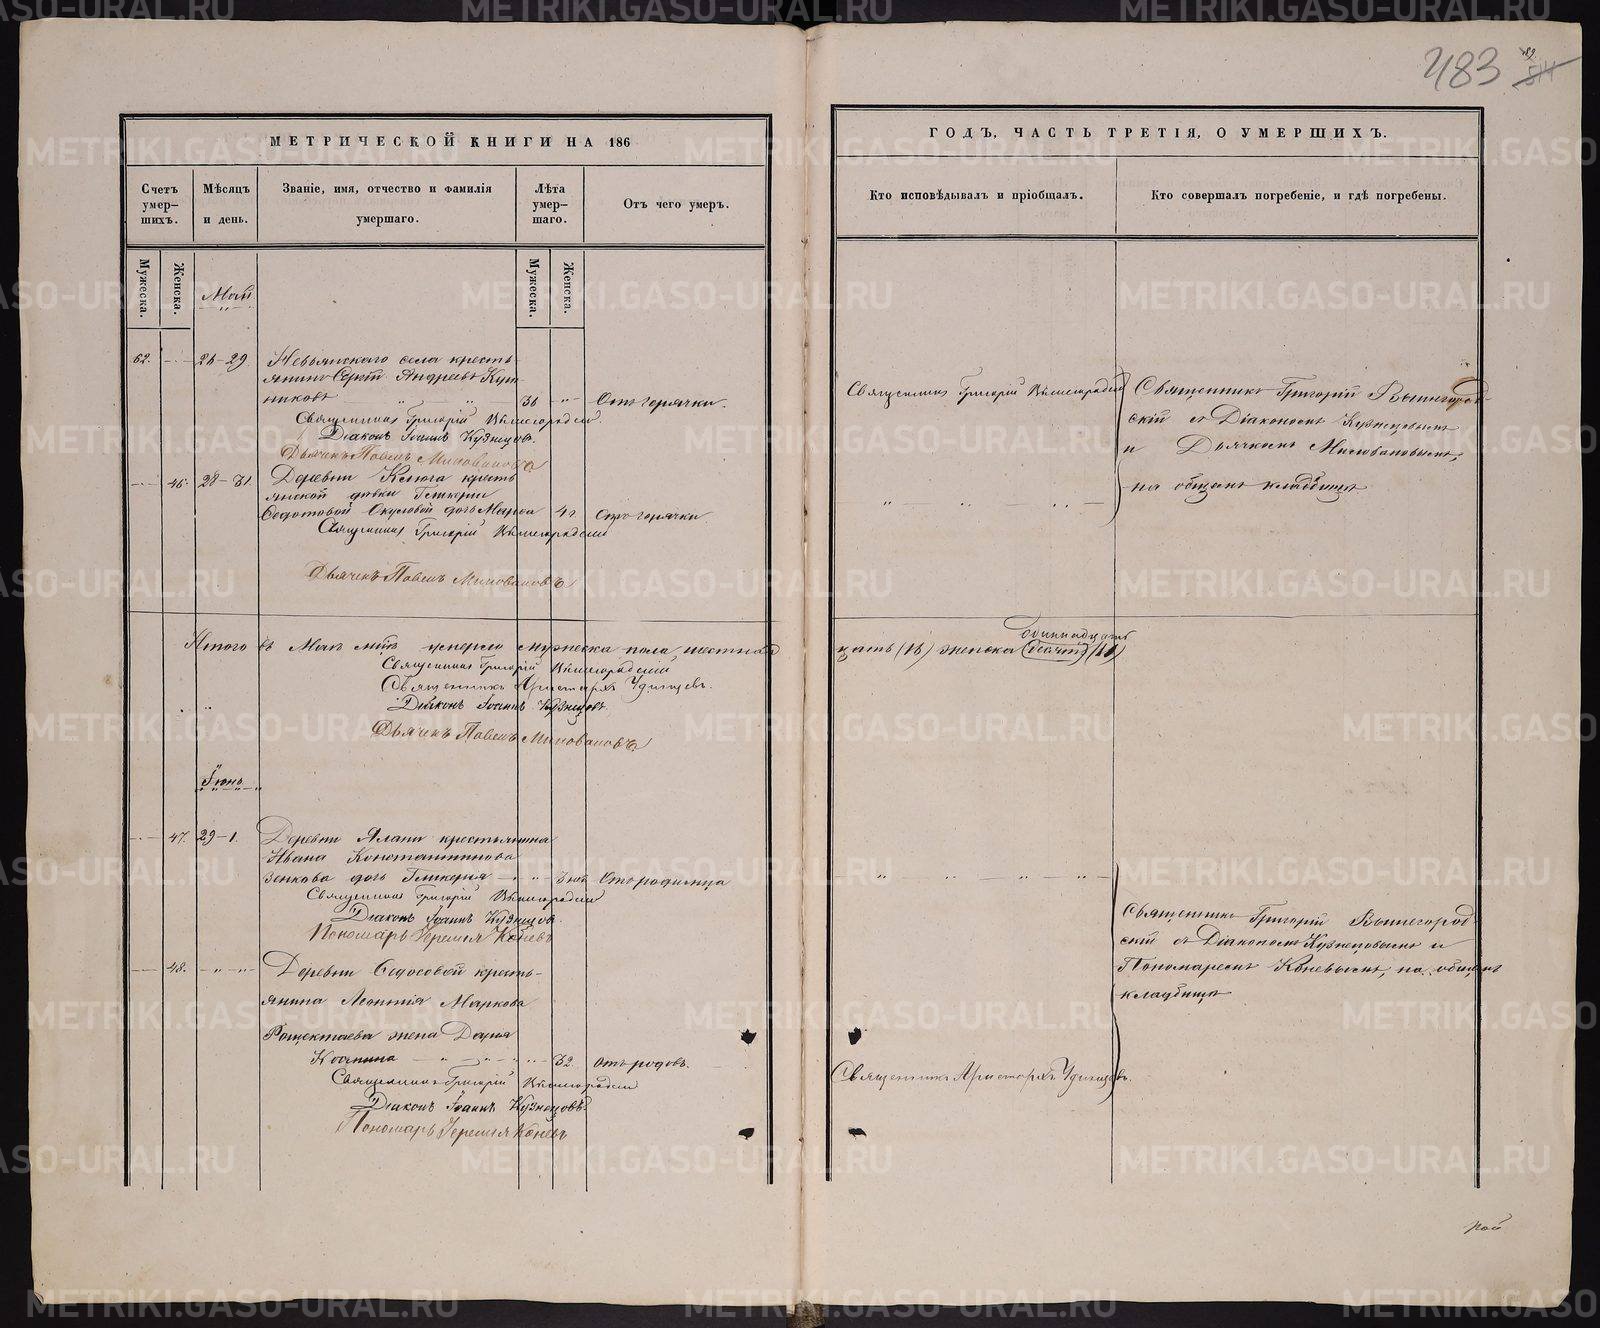 483
МЕТРИЧЕСКОЙ КНИГИ НА 186
Счетъ умер-шихъ.
Мѣсяцъ и день.
Званіе, имя, отчество и фамилія умершаго.
Лѣта умер-шаго.
Отъ чего умеръ.
Мужеска.
Женска.
Мужеска.
Женска.
Май
62. 26-29 Невьянскаго села кресть-
янинъ Сергій Андреевъ Кут-
никовъ 36 Отъ горячки.
Священникъ Григорій Вышегородскій
Діаконъ Іоаннъ Кузнецовъ.
Дьячекъ Павелъ Миловановъ
46. 28-31. Деревни Ключа кресть
янской дѣвки Гликеріи
Ѳедотовой Окуловой дочь Марѳа 4 г. Отъ горячки
Священникъ Григорій Вышегородскій
Дьячекъ Павелъ Миловановъ
Итого въ Маѣ мцѣ умерло мужеска пола шестнад
Священникъ Григорій Вышегородскій
Священникъ Аристархъ Удинцевъ.
Діаконъ Іоаннъ Кузнецовъ.
Дьячекъ Павелъ Миловановъ.
Іюнь
47. 29-1. Деревни Ялани крестьянина
Ивана Константинова
Зенкова дочь Гликерія 3 нед. Отъ родимца
Священникъ Григорій Вышегородскій
Діаконъ Іоаннъ Кузнецовъ.
Пономарь Іеремія Коневъ
48. Деревни Ѳедосовой кресть-
янина Леонтія Маркова
Рощектаева жена Дарья
Косьмина 32. Отъ родовъ.
Священникъ Григорій Вышегородскій
Діаконъ Іоаннъ Кузнецовъ.
Пономарь Іеремія Коневъ
ГОДЪ, ЧАСТЬ ТРЕТІЯ, О УМЕРШИХЪ.
Кто исповѣдывалъ и пріобщалъ.
Кто совершалъ погребеніе, и гдѣ погребены.
Священникъ Григорій Вышегородскій
Священникъ Григорій Вышегород-
скій съ Діакономъ Кузнецовымъ
и Дьячкомъ Миловановымъ,
на общемъ кладбищѣ
одиннадцать
цать (16) женска (десять) (11)
Священникъ Григорій Вышегород-
скій съ Діакономъ Кузнецовымъ и
Пономаремъ Коневымъ, на общемъ
кладбищѣ
Священникъ Аристархъ Удинцевъ.
METRIKI.GASO-URAL.RU